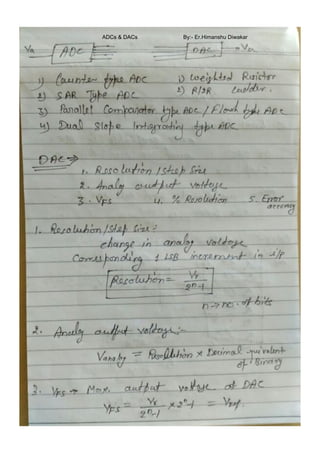 ADCs & DACs By:- Er.Himanshu Diwakar
Va ADC DAC Va
1) Counter type ADC 1) Weighted Resistor
2) SAR Type ADC 2) R/2R Ladder.
3) Parallel Comparator type ADC / Flash type ADC
4) Dual Slope Integrating type ADC
DAC ⇒
1. Resolution / Step Size
2. Analog output voltage
3. VFS 4. % Resolution 5. Error accuracy
1. Resolution / Step Size :-
change in analog voltage
Corresponding 1 LSB increment in i/p
Resolution = Vr / 2^n-1
n → no. of bits
2. Analog output voltage :-
Vanalog = Resolution × Decimal equivalent of Binary
3. VFS → Max. output voltage of DAC
VFS = Vr / 2^n-1 × 2^n-1 = Vref.